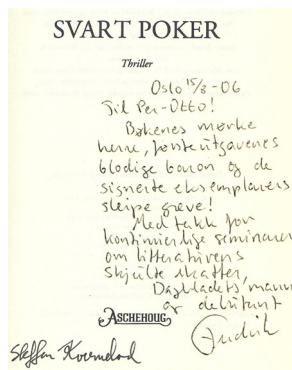 SVART POKER
Thriller
Oslo 15/3-06
Til Per-Otto!
Bøkenes mørke
herre, førsteutgavenes
blodige baron og de
signerte eksemplarers
sleipe greve!
Med takk for
kontinuerlige seminarer
om litteraturens
skjulte skatter,
Dagbladets mann
og debutant
Fredrik
ASCHEHOUG
Steffen